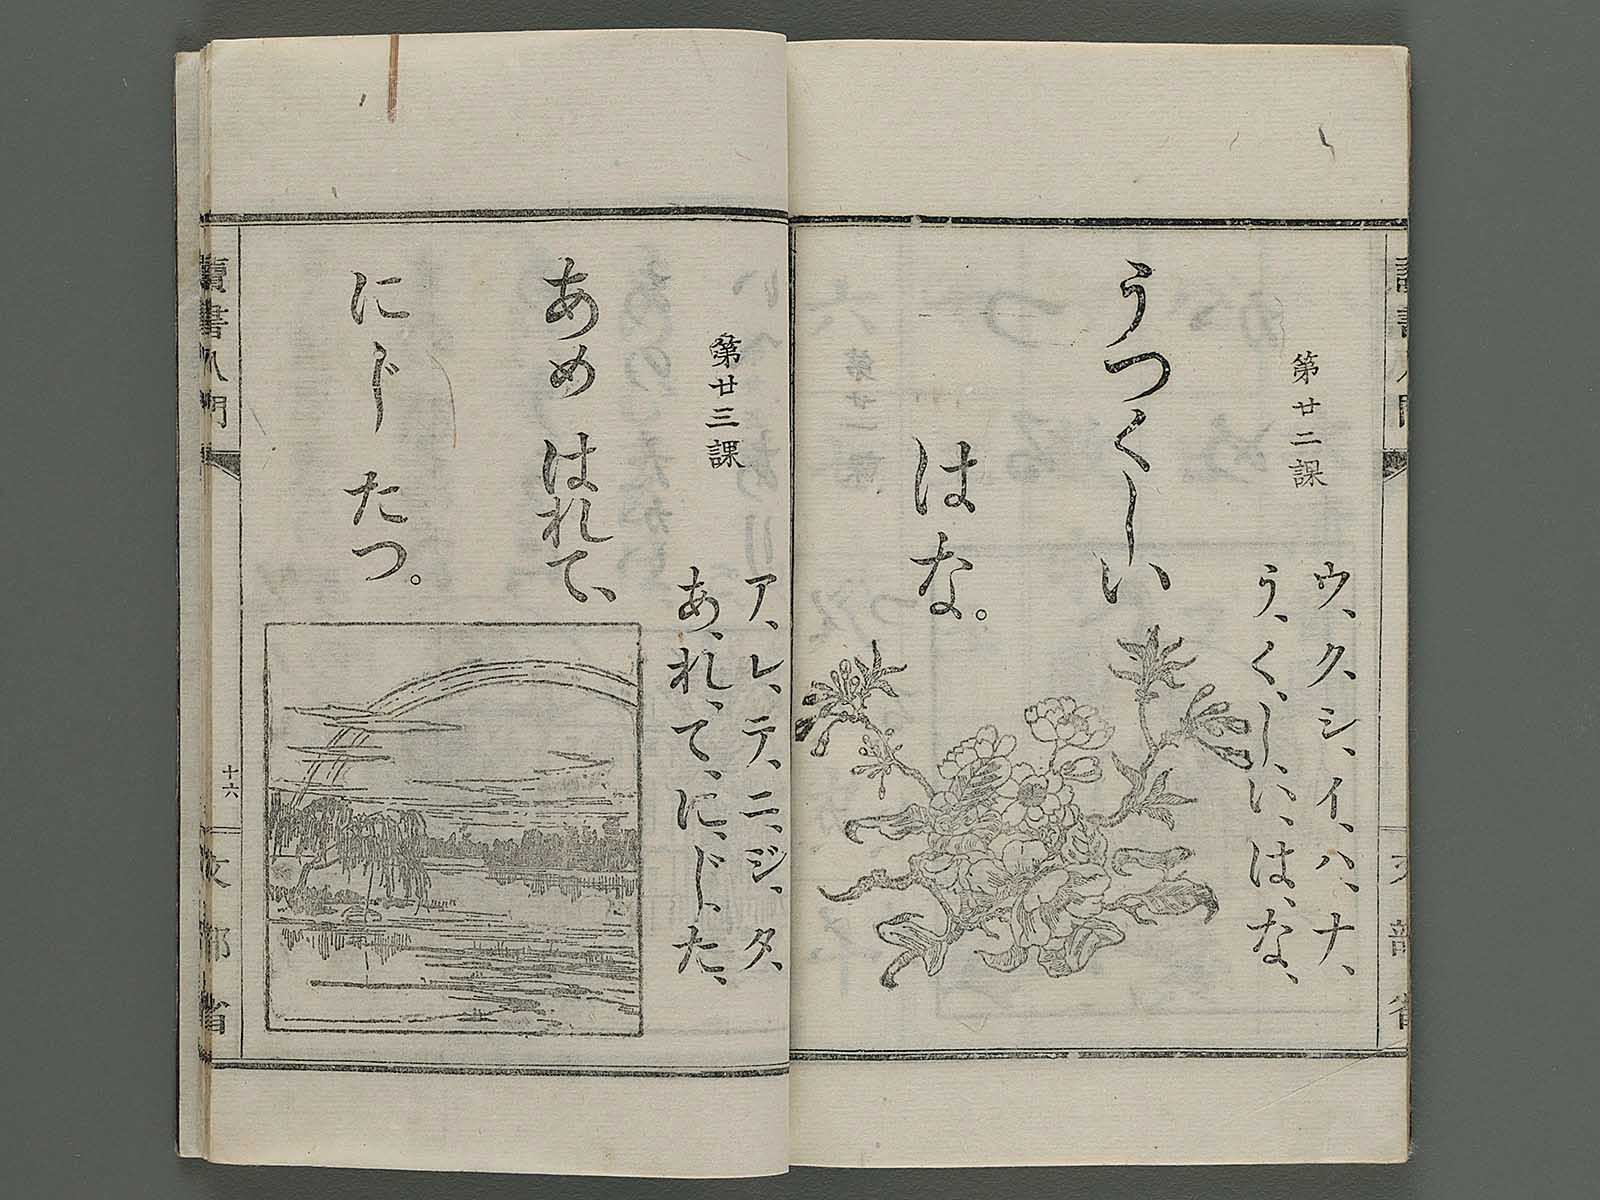 第廿二課
ウ、ク、シ、イ、ハ、ナ、
う、く、し、い、は、な、
うつくしい
はな。
第廿三課
ア、レ、テ、ニ、ジ、タ、
あ、れ、て、に、じ、た、
あめ はれて、
にじ たつ。
讀書入門
十六
文部省